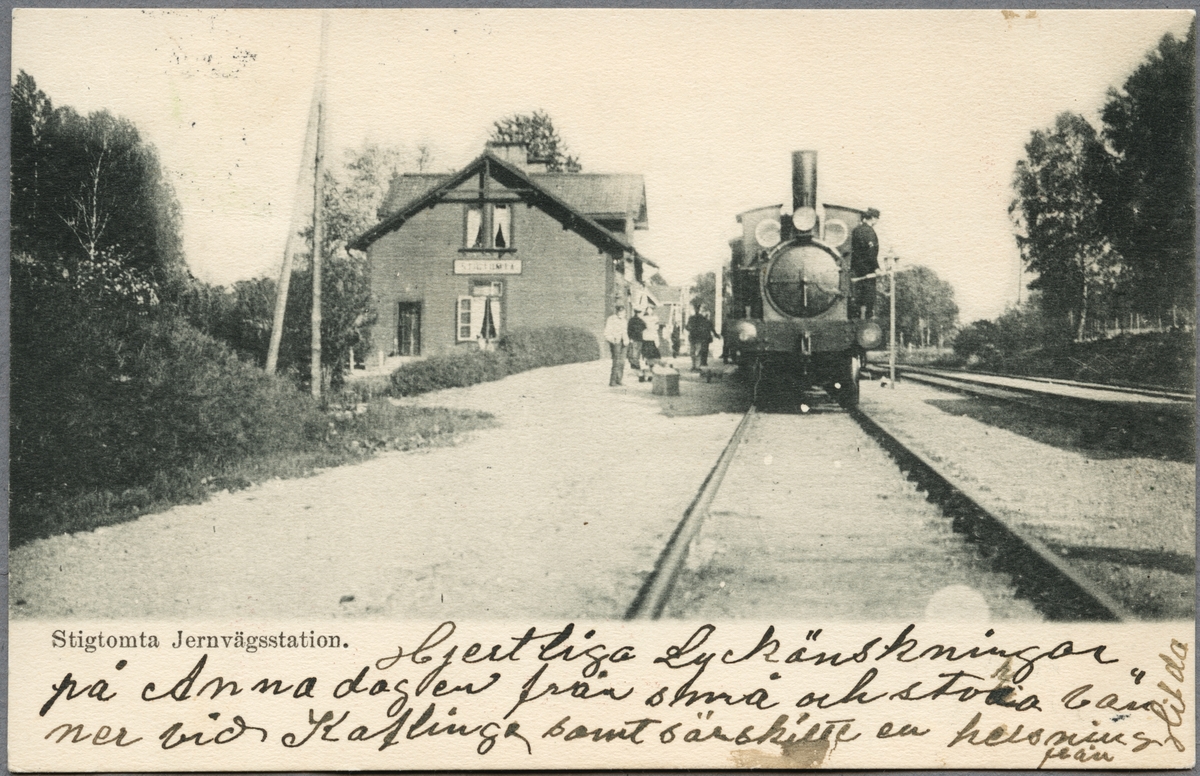 STIGTOMTA
Stigtomta Jernvägsstation.
Hjertliga Lyckönskningar
på Anna dagen från små och stora vän„
ner vid Kaflinge samt särskilt en helsning
från
Hilda